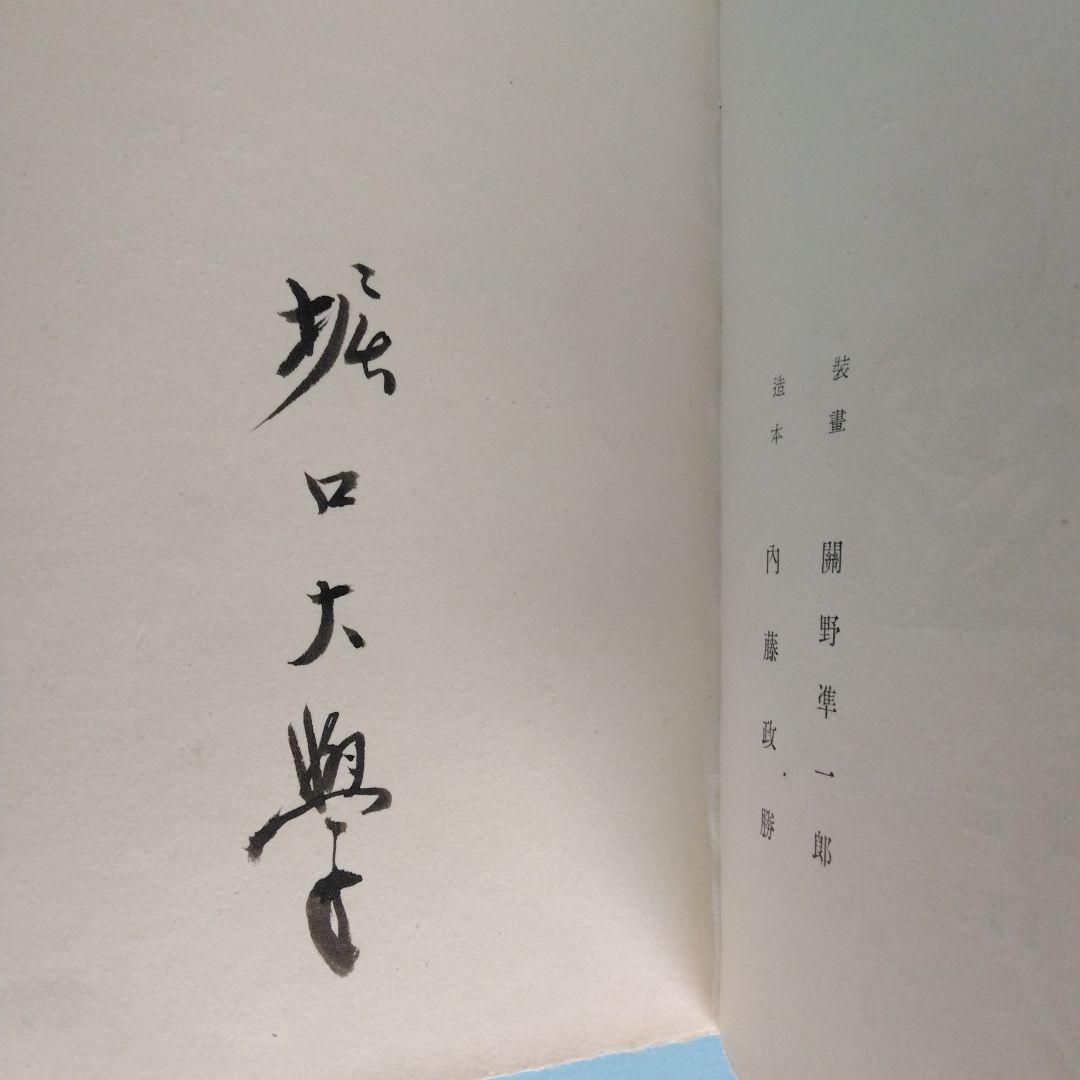 裝畫 關野準一郎
造本 內藤政勝
堀口大學